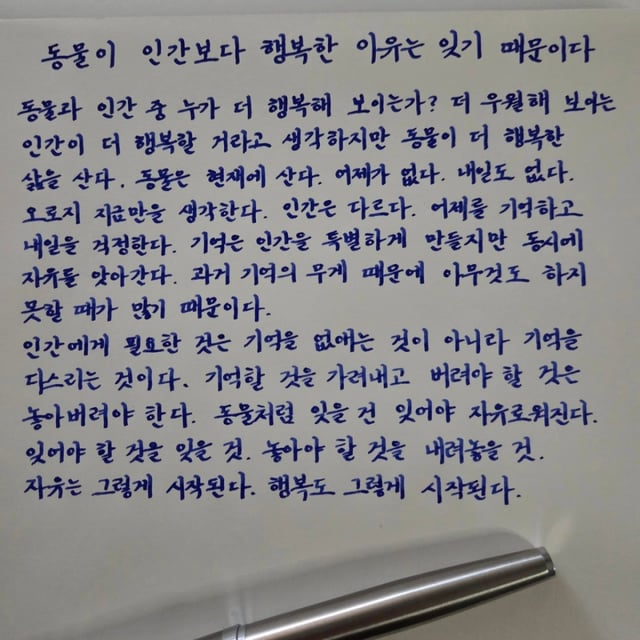 동물이 인간보다 행복한 이유는 잊기 때문이다
동물과 인간 중 누가 더 행복해 보이는가? 더 우월해 보이는
인간이 더 행복할 거라고 생각하지만 동물이 더 행복한
삶을 산다. 동물은 현재에 산다. 어제가 없다. 내일도 없다.
오로지 지금만을 생각한다. 인간은 다르다. 어제를 기억하고
내일을 걱정한다. 기억은 인간을 특별하게 만들지만 동시에
자유를 앗아간다. 과거 기억의 무게 때문에 아무것도 하지
못할 때가 많기 때문이다.
인간에게 필요한 것은 기억을 없애는 것이 아니라 기억을
다스리는 것이다. 기억할 것을 가려내고 버려야 할 것은
놓아버려야 한다. 동물처럼 잊을 건 잊어야 자유로워진다.
잊어야 할 것을 잊을 것. 놓아야 할 것을 내려놓을 것.
자유는 그렇게 시작된다. 행복도 그렇게 시작된다.